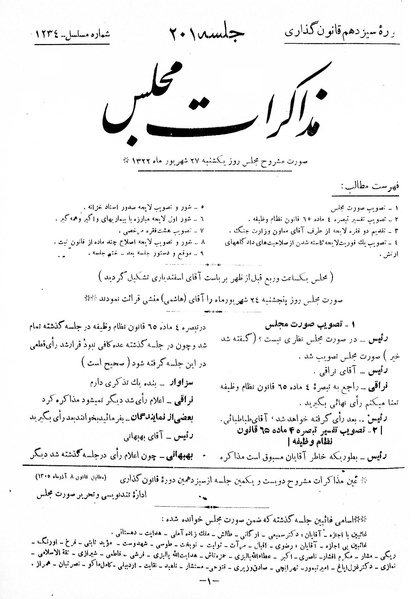 دورهٔ سیزدهم قانون گذاری
جلسه ۲۰۱
شماره مسلسل - ۱۲۳۴
مذاکرات مجلس
صورت مشروح مجلس روز یکشنبه ۲۷ شهریور ماه ۱۳۲۲
فهرست مطالب:
۱ - تصویب صورت مجلس
۲ - تصویب تفسیر تبصره ۴ ماده ۶۵ قانون نظام وظیفه.
۳ - تقدیم دو فقره لایحه از طرف آقای معاون وزارت جنگ.
۴ - تصویب یک فوریت لایحه کاسته شدن از صلاحیت‌های دادگاههای
ارتش.
۵ - شور و تصویب لایحه صدور اسناد خزانه.
۶ - شور اول لایحه مبارزه با بیماریهای واگیر و همه گیر.
۷ - تصویب هشت فقره مرخصی.
۸ - شور و تصویب لایحه اصلاح چند ماده از قانون ثبت.
۹ - موقع و دستور جلسه بعد - ختم جلسه.
(مجلس یکساعت وربع قبل از ظهر بریاست آقای اسفندیاری تشکیل گردید)
صورت مجلس روز پنجشنبه ۲۴ شهریور ماه را آقای (هاشمی) منشی قرائت نمودند
۱ - تصویب صورت مجلس
رئیس - در صورت مجلس نظری نیست؟ (گفته شد
خیر) صورت مجلس تصویب شد.
رئیس - آقای نراقی.
نراقی - راجع به تبصرهٔ ۴ ماده ۶۵ قانون نظام وظیفه
تمنا میکنم رأی نهائی بگیرید.
رئیس - بعد رأی گرفته خواهد شد، آقای طباطبائی.
۲ - تصویب تفسیر تبصره ۴ ماده ۶۵ قانون
نظام وظیفه
رئیس - بطوریکه خاطر آقایان مسبوق است مذاکره
در تبصره ۴ ماده ۶۵ قانون نظام وظیفه در جلسه گذشته تمام
شد و چون در جلسه گذشته عده کافی نبود قرار شد رأی قطعی
در این جلسه گرفته شود (صحیح است)
سزاوار - بنده یک تذکری دارم
نراقی - اعلام رأی شد دیگر نمیشود مذاکره کرد
بعضی از نمایندگان - بفرمائید بخوانند بعد رأی بگیرید
رئیس - آقای بهبهانی
بهبهانی - چون اعلام رأی در جلسه قبل شد دیگر
عین مذاکرات مشروح دویست و یکمین جلسه از سیزدهمین دورهٔ قانون گذاری
(مطابق قانون ۸ آذرماه ۱۳۰۵)
ادارهٔ تندنویسی و تحریر صورت مجلس
اسامی غائبین جلسه گذشته که ضمن صورت مجلس خوانده شده:
غائبین با اجازه - آقایان:
غائبین بی اجازه - آقایان:
- ۱ -